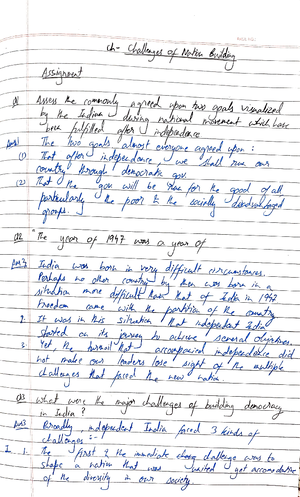 Ch- Challenges of Nation Building
Assignment
Q1 Assess the commonly agreed upon two goals visualized
by the Indian during national movement which have
been fulfilled after independence
Ans1 The two goals almost everyone agreed upon :
(1) That after independence, we shall run our
country through democratic gov.
(2) That the gov will be run for the good of all
particularly the poor & the socially disadvantaged
groups.
Q2 "The year of 1947 was a year of
Ans2 India was born in very difficult circumstances.
Perhaps no other country by then was born in a
situation more difficult than that of India in 1947
Freedom came with the partition of the country
2. It was in this situation that independent India
started on its journey to achieve several objectives.
3. Yet the turmoil that accompanied independence did
not make our leaders lose sight of the multiple
challenges that faced the new nation.
Q3 what were the major challenges of building democracy
in India?
Ans3 Broadly, independent India faced 3 kinds of
challenges :-
I. 1. The first & the immediate challenge was to
shape a nation that was united yet accomodative
of the diversity in our society.